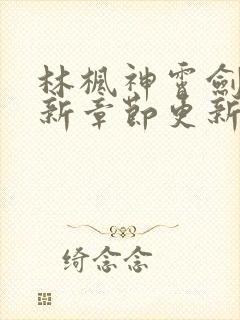 林枫神雷劍
新章節更新
绮念念